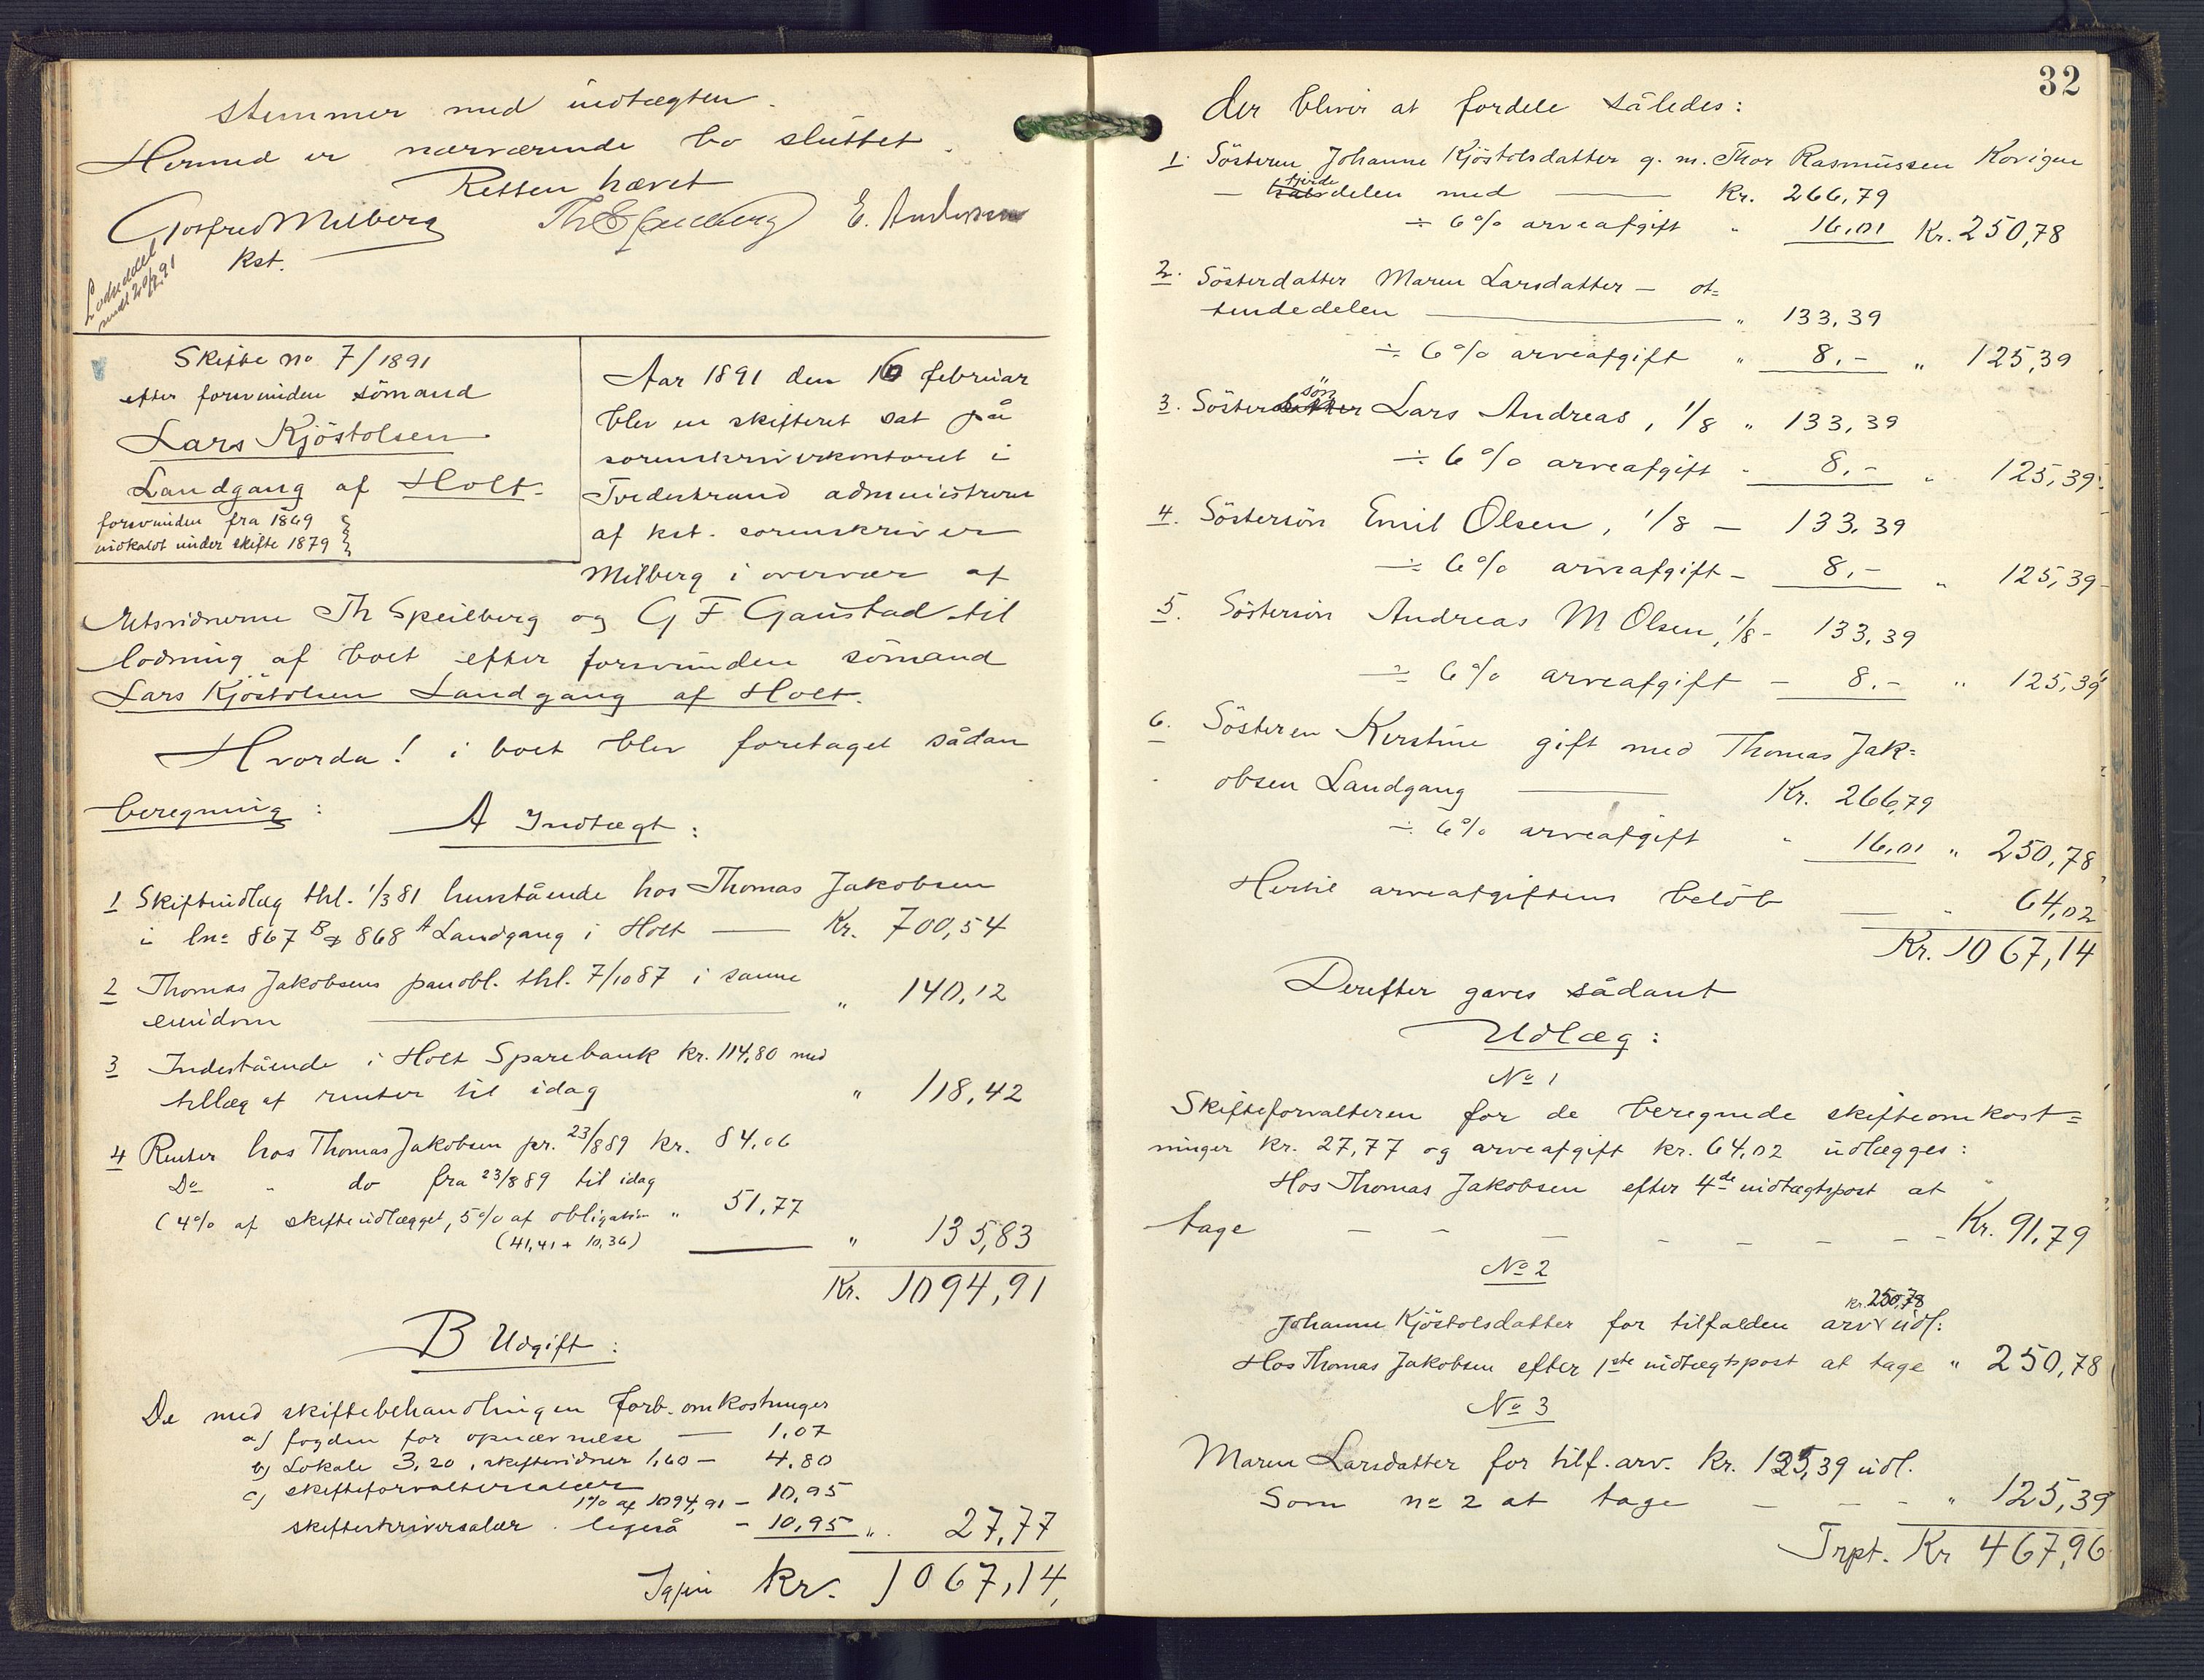 stemmer med indtægten.
Hermed er nærværende bo sluttet.
Retten hævet
Gotfred Milberg Th Speilberg E. Andersen
Kst.
Loddeddel
sendt 20/2 91
Skifte no 7/1891
efter forsvunden sömand
Lars Kjöstolsen
Landgang af Holt.
forsvunden fra 1869
indkaldt under skifte 1879
Aar 1891 den 16 februar
blev en skifteret sat på
sorenskriverkontoret i
Tvedestrand administreret
af kst. sorenskriver
Milberg i overvær af
Retsvidnerne Th Speilberg og G F Gaustad til
lodning af boet efter forsvunden sömand
Lars Kjöstolsen Landgang af Holt.
Hvorda! i boet blev foretaget sådan
beregning:
A Indtægt:
1 Skifteudlæg thl. 1/3 81 henstående hos Thomas Jakobsen
i lno 867 B og 868 A Landgang i Holt — Kr. 700,54
2 Thomas Jakobsens panobl. thl. 7/10 87 i samme
eiendom — " 140,12
3 Indestående i Holt Sparebank kr. 114,80 med
tillæg af renter til idag " 118,42
4 Renter hos Thomas Jakobsen pr. 23/8 89 kr. 84,06
Do " do fra 23/8 89 til idag
(4% af skifteudlægget, 5% af obligation " 51,77
(41,41 + 10,36) — " 135,83
Kr. 1094,91
B Udgift:
De med skiftebehandlingen forb. omkostninger
a) fogden for opnævnelse — 1,07
b) Lokale 3,20, skiftevidner 1,60 — 4,80
c) skifteforvaltersalær
1% af 1094,91 — 10,95
skifteskriversalær. ligeså — 10,95 " 27,77
Igjen kr. 1067,14,
32
der bliver at fordele således:
1. Sösteren Johanne Kjöstolsdatter g. m. Thor Rasmussen Kovigen
— fjerde
delen med — Kr. 266,79
÷ 6% arveafgift " 16,01 Kr. 250,78
2. Sösterdatter Maren Larsdatter — ot=
tendedelen — " 133,39
÷ 6% arveafgift " 8.- " 125,39
3. Söstersön Lars Andreas, 1/8 " 133,39
÷ 6% arveafgift - 8.- " 125,39
4. Söstersön Emil Olsen, 1/8 — 133,39
÷ 6% arveafgift - 8.- " 125,39
5. Söstersön Andreas M Olsen, 1/8 - 133,39
÷ 6% arveafgift - 8.- " 125,39
6. Sösteren Kerstine gift med Thomas Jak=
obsen Landgang — Kr. 266,79
÷ 6% arveafgift " 16,01 " 250,78
Hertil arveafgiftens belöb — " 64,02
Kr. 1067,14
Derefter gaves sådant
Udlæg:
No 1
Skifteforvalteren for de beregnede skifteomkost=
ninger kr. 27,77 og arveafgift kr. 64,02 udlægges:
Hos Thomas Jakobsen efter 4de indtægtspost at
tage - - - - - - - Kr. 91,79
No 2
kr. 250,78
Johanne Kjöstolsdatter for tilfalden arv udl:
Hos Thomas Jakobsen efter 1ste indtægtspost at tage " 250,78
No 3
Maren Larsdatter for tilf. arv. kr. 125,39 udl.
Som no 2 at tage - - - " 125,39
Trpt. Kr 467,96